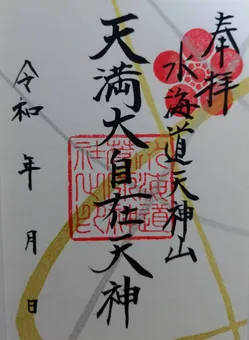 奉拝
水海道天神山
天満大自在天神
令和 年 月 日